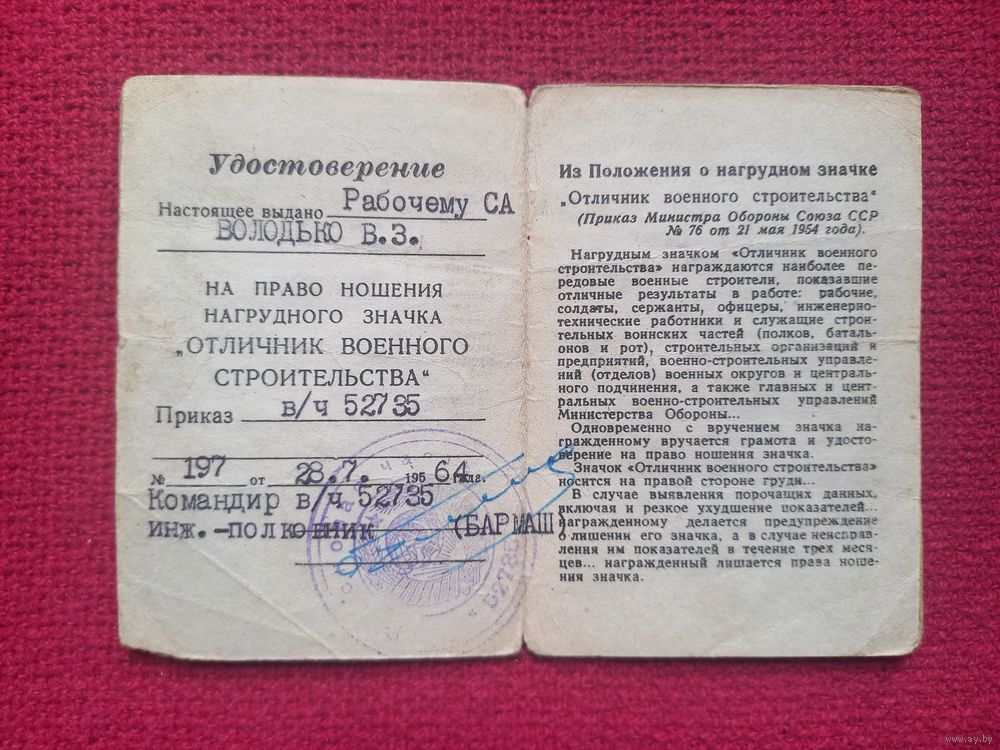 Удостоверение
Настоящее выдано Рабочему СА
ВОЛОДЬКО В.З.
НА ПРАВО НОШЕНИЯ
НАГРУДНОГО ЗНАЧКА
„ОТЛИЧНИК ВОЕННОГО
СТРОИТЕЛЬСТВА“
Приказ в/ч 52735
№ 197 от 28.7. 195 64 года.
Командир в/ч 52735
инж.-полковник (БАРМАШ)
Из Положения о нагрудном значке
„Отличник военного строительства“
(Приказ Министра Обороны Союза ССР
№ 76 от 21 мая 1954 года).
Нагрудным значком «Отличник военного
строительства» награждаются наиболее пе-
редовые военные строители, показавшие
отличные результаты в работе: рабочие,
солдаты, сержанты, офицеры, инженерно-
технические работники и служащие строи-
тельных воинских частей (полков, баталь-
онов и рот), строительных организаций и
предприятий, военно-строительных управле-
ний (отделов) военных округов и централь-
ного подчинения, а также главных и цент-
ральных военно-строительных управлений
Министерства Обороны...
Одновременно с вручением значка на-
гражденному вручается грамота и удосто-
верение на право ношения значка.
Значок «Отличник военного строительства»
носится на правой стороне груди...
В случае выявления порочащих данных,
включая и резкое ухудшение показателей...
награжденному делается предупреждение
о лишении его значка, а в случае неисправ-
ления им показателей в течение трех меся-
цев... награжденный лишается права ноше-
ния значка.
www.ay.by